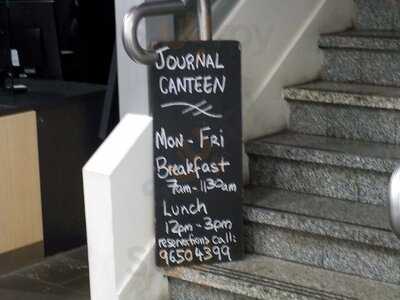 JOURNAL
CANTEEN
Mon - Fri
Breakfast
7am - 1130am
Lunch
12pm - 3pm
reservations call:
96504399